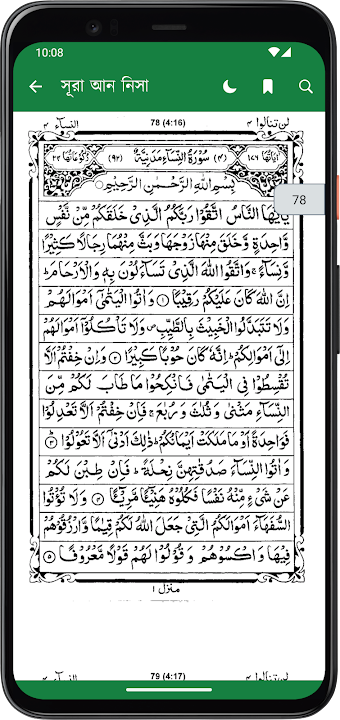 10:08
সূরা আন নিসা
لن تنالوا ٤ 78 (4:16) النسآء ٤
اٰيَاتُهَا ١٤٦ (٤) سُوْرَةُ النِّسَآءِ مَدَنِيَّةٌ (٩٢) رُكُوْعَاتُهَا ٢٤
بِسْمِ اللّٰهِ الرَّحْمٰنِ الرَّحِيْمِ
78
يٰۤاَيُّهَا النَّاسُ اتَّقُوْا رَبَّكُمُ الَّذِيْ خَلَقَكُمْ مِّنْ نَّفْسٍ
وَّاحِدَةٍ وَّخَلَقَ مِنْهَا زَوْجَهَا وَبَثَّ مِنْهُمَا رِجَالًا كَثِيْرًا
وَّنِسَآءً ۚ وَاتَّقُوا اللّٰهَ الَّذِيْ تَسَآءَلُوْنَ بِهٖ وَالْاَرْحَامَ ؕ
اِنَّ اللّٰهَ كَانَ عَلَيْكُمْ رَقِيْبًا ۝١ وَاٰتُوا الْيَتٰمٰۤى اَمْوَالَهُمْ
وَلَا تَتَبَدَّلُوا الْخَبِيْثَ بِالطَّيِّبِ ۪ وَلَا تَاْكُلُوْۤا اَمْوَالَهُمْ
اِلٰۤى اَمْوَالِكُمْ ؕ اِنَّهٗ كَانَ حُوْبًا كَبِيْرًا ۝٢ وَاِنْ خِفْتُمْ اَلَّا
تُقْسِطُوْا فِي الْيَتٰمٰى فَانْكِحُوْا مَا طَابَ لَكُمْ مِّنَ
النِّسَآءِ مَثْنٰى وَثُلٰثَ وَرُبٰعَ ۚ فَاِنْ خِفْتُمْ اَلَّا تَعْدِلُوْا
فَوَاحِدَةً اَوْ مَا مَلَكَتْ اَيْمَانُكُمْ ؕ ذٰلِكَ اَدْنٰۤى اَلَّا تَعُوْلُوْا ۝٣
وَاٰتُوا النِّسَآءَ صَدُقٰتِهِنَّ نِحْلَةً ؕ فَاِنْ طِبْنَ لَكُمْ
عَنْ شَيْءٍ مِّنْهُ نَفْسًا فَكُلُوْهُ هَنِيْٓئًا مَّرِيْٓئًا ۝٤ وَلَا تُؤْتُوا
السُّفَهَآءَ اَمْوَالَكُمُ الَّتِيْ جَعَلَ اللّٰهُ لَكُمْ قِيٰمًا وَّارْزُقُوْهُمْ
فِيْهَا وَاكْسُوْهُمْ وَقُوْلُوْا لَهُمْ قَوْلًا مَّعْرُوْفًا ۝٥
منزل ١
79 (4:17)